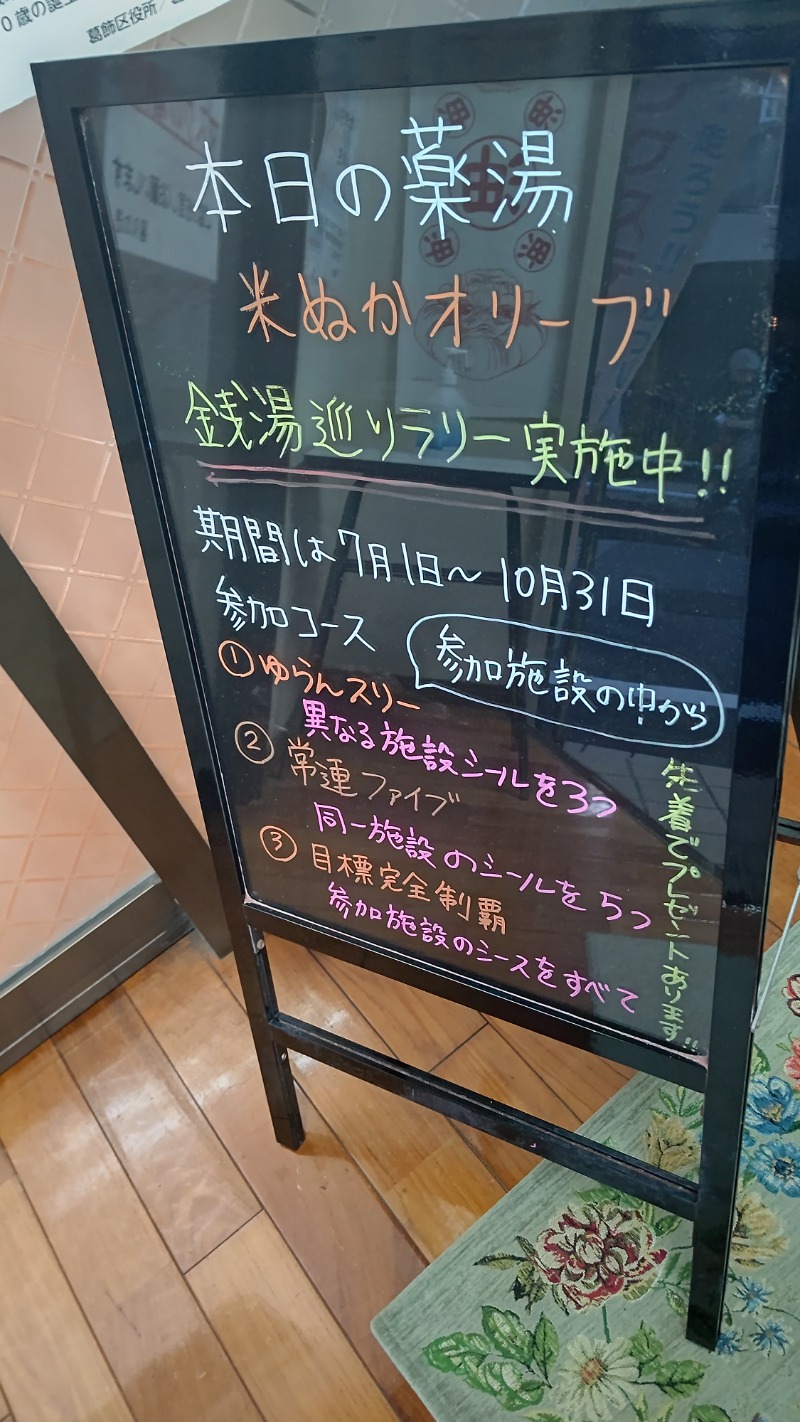 0歳の誕生
葛飾区役所
本日の薬湯
米ぬかオリーブ
銭湯巡りラリー実施中!!
期間は7月1日～10月31日
参加コース
参加施設の中から
①ゆらんスリー
異なる施設シールを3つ
②常連ファイブ
同一施設のシールを5つ
③目標完全制覇
参加施設のシースをすべて
先着でプレゼントあります!!